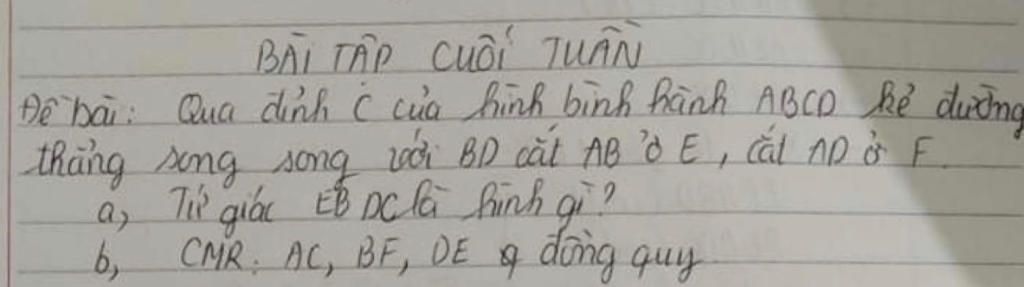 BÀI TẬP CUỐI TUẦN
Đề bài: Qua đỉnh C của hình bình hành ABCD kẻ đường
thẳng song song với BD cắt AB ở E, cắt AD ở F.
a, Tứ giác EBDC là hình gì?
b, CMR: AC, BF, DE đồng quy